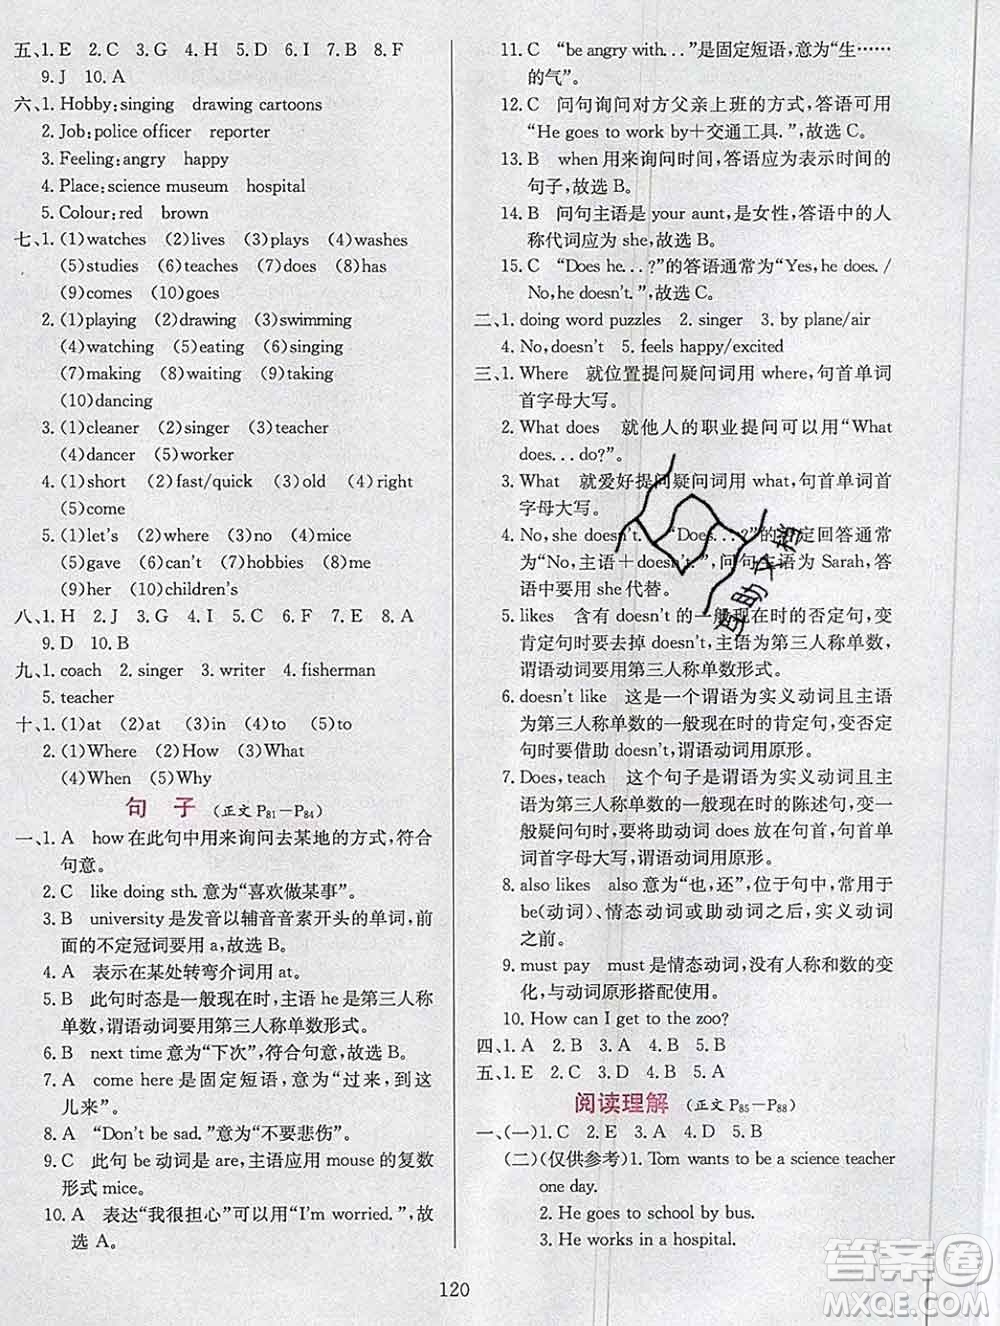 五、1. E 2. C 3. G 4. H 5. D 6. I 7. B 8. F
9. J 10. A
六、1. Hobby:singing drawing cartoons
2. Job:police officer reporter
3. Feeling:angry happy
4. Place:science museum hospital
5. Colour:red brown
七、1. (1)watches (2)lives (3)plays (4)washes
(5)studies (6)teaches (7)does (8)has
(9)comes (10)goes
2. (1)playing (2)drawing (3)swimming
(4)watching (5)eating (6)singing
(7)making (8)waiting (9)taking
(10)dancing
3. (1)cleaner (2)singer (3)teacher
(4)dancer (5)worker
4. (1)short (2)fast/quick (3)old (4)right
(5)come
5. (1)let's (2)doesn't (3)go (4)mice
(5)gave (6)can't (7)hobbies (8)me
(9)her (10)children's
八、1. H 2. J 3. I 4. F 5. C 6. G 7. E 8. A
9. D 10. B
九、1. coach 2. singer 3. writer 4. fisherman
5. teacher
十、1. (1)at (2)at (3)in (4)to (5)to
2. (1)Where (2)How (3)What
(4)When (5)Why
句 子 (正文 P81—P84)
一、1. A how在此句中用来询问去某地的方式,符合
句意。
2. C like doing sth. 意为“喜欢做某事”。
3. B university是发音以辅音音素开头的单词,前
面的不定冠词要用a,故选B。
4. A 表示在某处转弯介词用at。
5. B 此句时态是一般现在时,主语he是第三人称
单数,谓语动词要用第三人称单数形式。
6. B next time意为“下次”,符合句意,故选B。
7. A come here是固定短语,意为“过来,到这
儿来”。
8. A “Don't be sad.”意为“不要悲伤”。
9. C 此句be动词是are,主语应用mouse的复数
形式mice。
10. A 表达“我很担心”可以用“I'm worried.”,故
选A。
11. C “be angry with...”是固定短语,意为“生……
的气”。
12. C 问句询问对方父亲上班的方式,答语可用
“He goes to work by+交通工具.”,故选C。
13. B when用来询问时间,答语应为表示时间的
句子,故选B。
14. B 问句主语是your aunt,是女性,答语中的人
称代词应为she,故选B。
15. C “Does he...?”的答语通常为“Yes,he does./
No,he doesn't.”,故选C。
二、1. doing word puzzles 2. singer 3. by plane/air
4. No,doesn't 5. feels happy/excited
三、1. Where 就位置提问疑问词用where,句首单词
首字母大写。
2. What does 就他人的职业提问可以用“What
does...do?”。
3. What 就爱好提问疑问词用what,句首单词首
字母大写。
4. No,she doesn't. “Does...?”的否定回答通常
为“No,主语+doesn't.”,问句主语为Sarah,答
语中要用she代替。
5. likes 含有doesn't的一般现在时的否定句,变
肯定句时要去掉doesn't,主语为第三人称单数,
谓语动词要用第三人称单数形式。
6. doesn't like 这是一个谓语为实义动词且主语
为第三人称单数的一般现在时的肯定句,变否定
句时要借助doesn't,谓语动词用原形。
7. Does,teach 这个句子是谓语为实义动词且主
语为第三人称单数的一般现在时的陈述句,变
一般疑问句时,要将助动词does放在句首,句首单
词首字母大写,谓语动词用原形。
8. also likes also意为“也,还”,位于句中,常用于
be(动词)、情态动词或助动词之后,实义动词
之前。
9. must pay must是情态动词,没有人称和数的变
化,与动词原形搭配使用。
10. How can I get to the zoo?
四、1. A 2. B 3. A 4. B 5. B
五、1. E 2. C 3. D 4. B 5. A
阅读理解 (正文 P85—P88)
一、(一)1. C 2. E 3. A 4. D 5. B
(二)(仅供参考)1. Tom wants to be a science teacher
one day.
2. He goes to school by bus.
3. He works in a hospital.
120
互助文档
答案圈
MXQE.COM